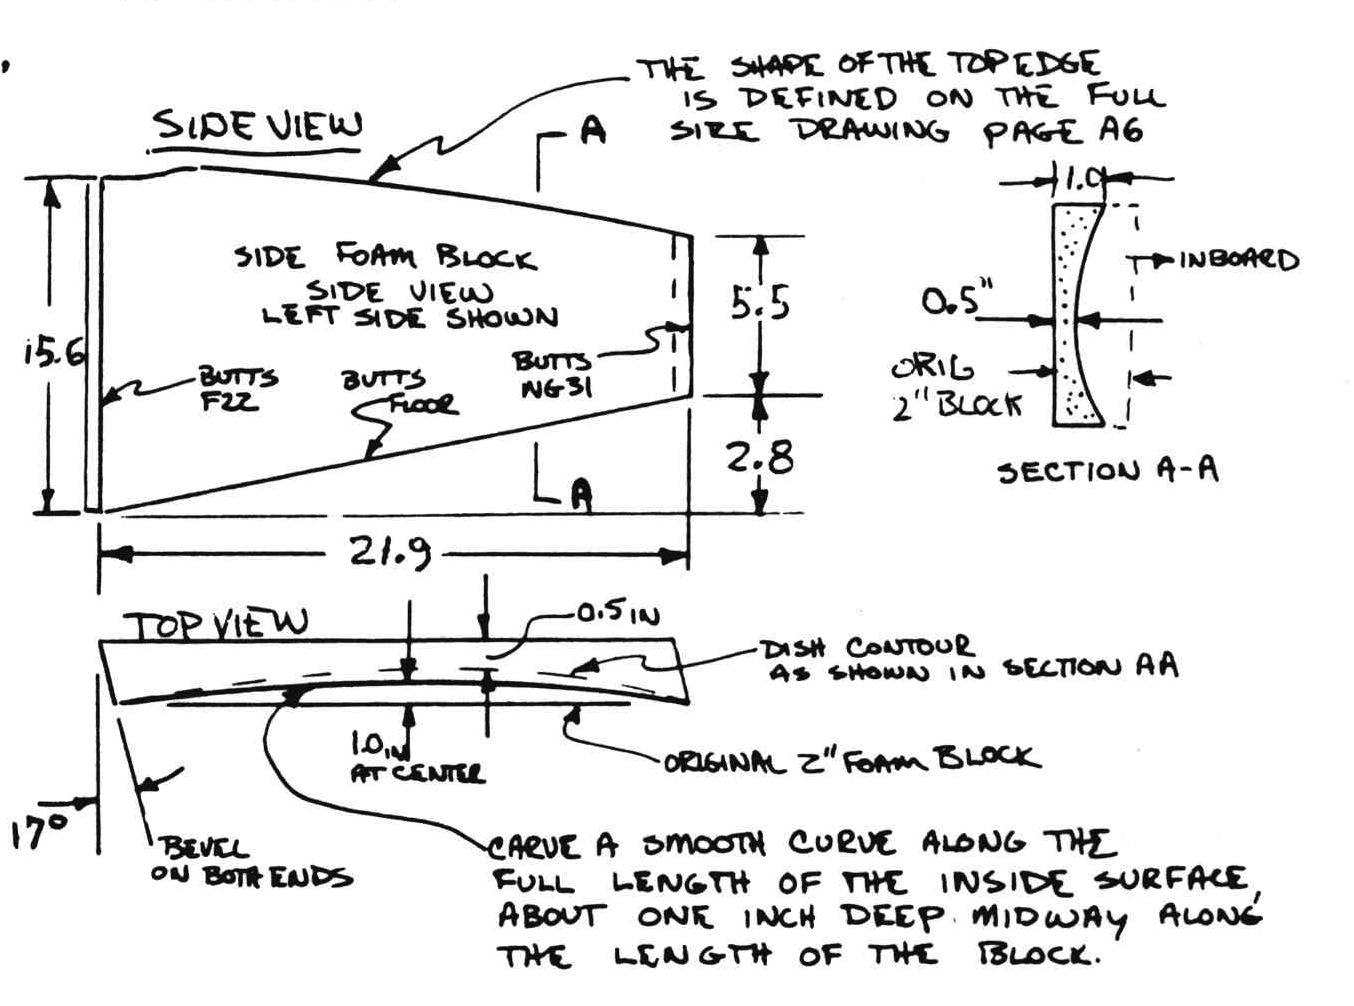 THE SHAPE OF THE TOP EDGE
IS DEFINED ON THE FULL
SIZE DRAWING PAGE A6
SIDE VIEW
A
1.0
SIDE FOAM BLOCK
SIDE VIEW
LEFT SIDE SHOWN
INBOARD
5.5
0.5"
15.6
BUTTS
F22
BUTTS
FLOOR
BUTTS
NG31
ORIG
2" BLOCK
2.8
SECTION A-A
A
21.9
TOP VIEW
0.5 IN
DISH CONTOUR
AS SHOWN IN SECTION AA
1.0 IN
AT CENTER
ORIGINAL 2" FOAM BLOCK
17°
BEVEL
ON BOTH ENDS
CARVE A SMOOTH CURVE ALONG THE
FULL LENGTH OF THE INSIDE SURFACE,
ABOUT ONE INCH DEEP MIDWAY ALONG
THE LENGTH OF THE BLOCK.